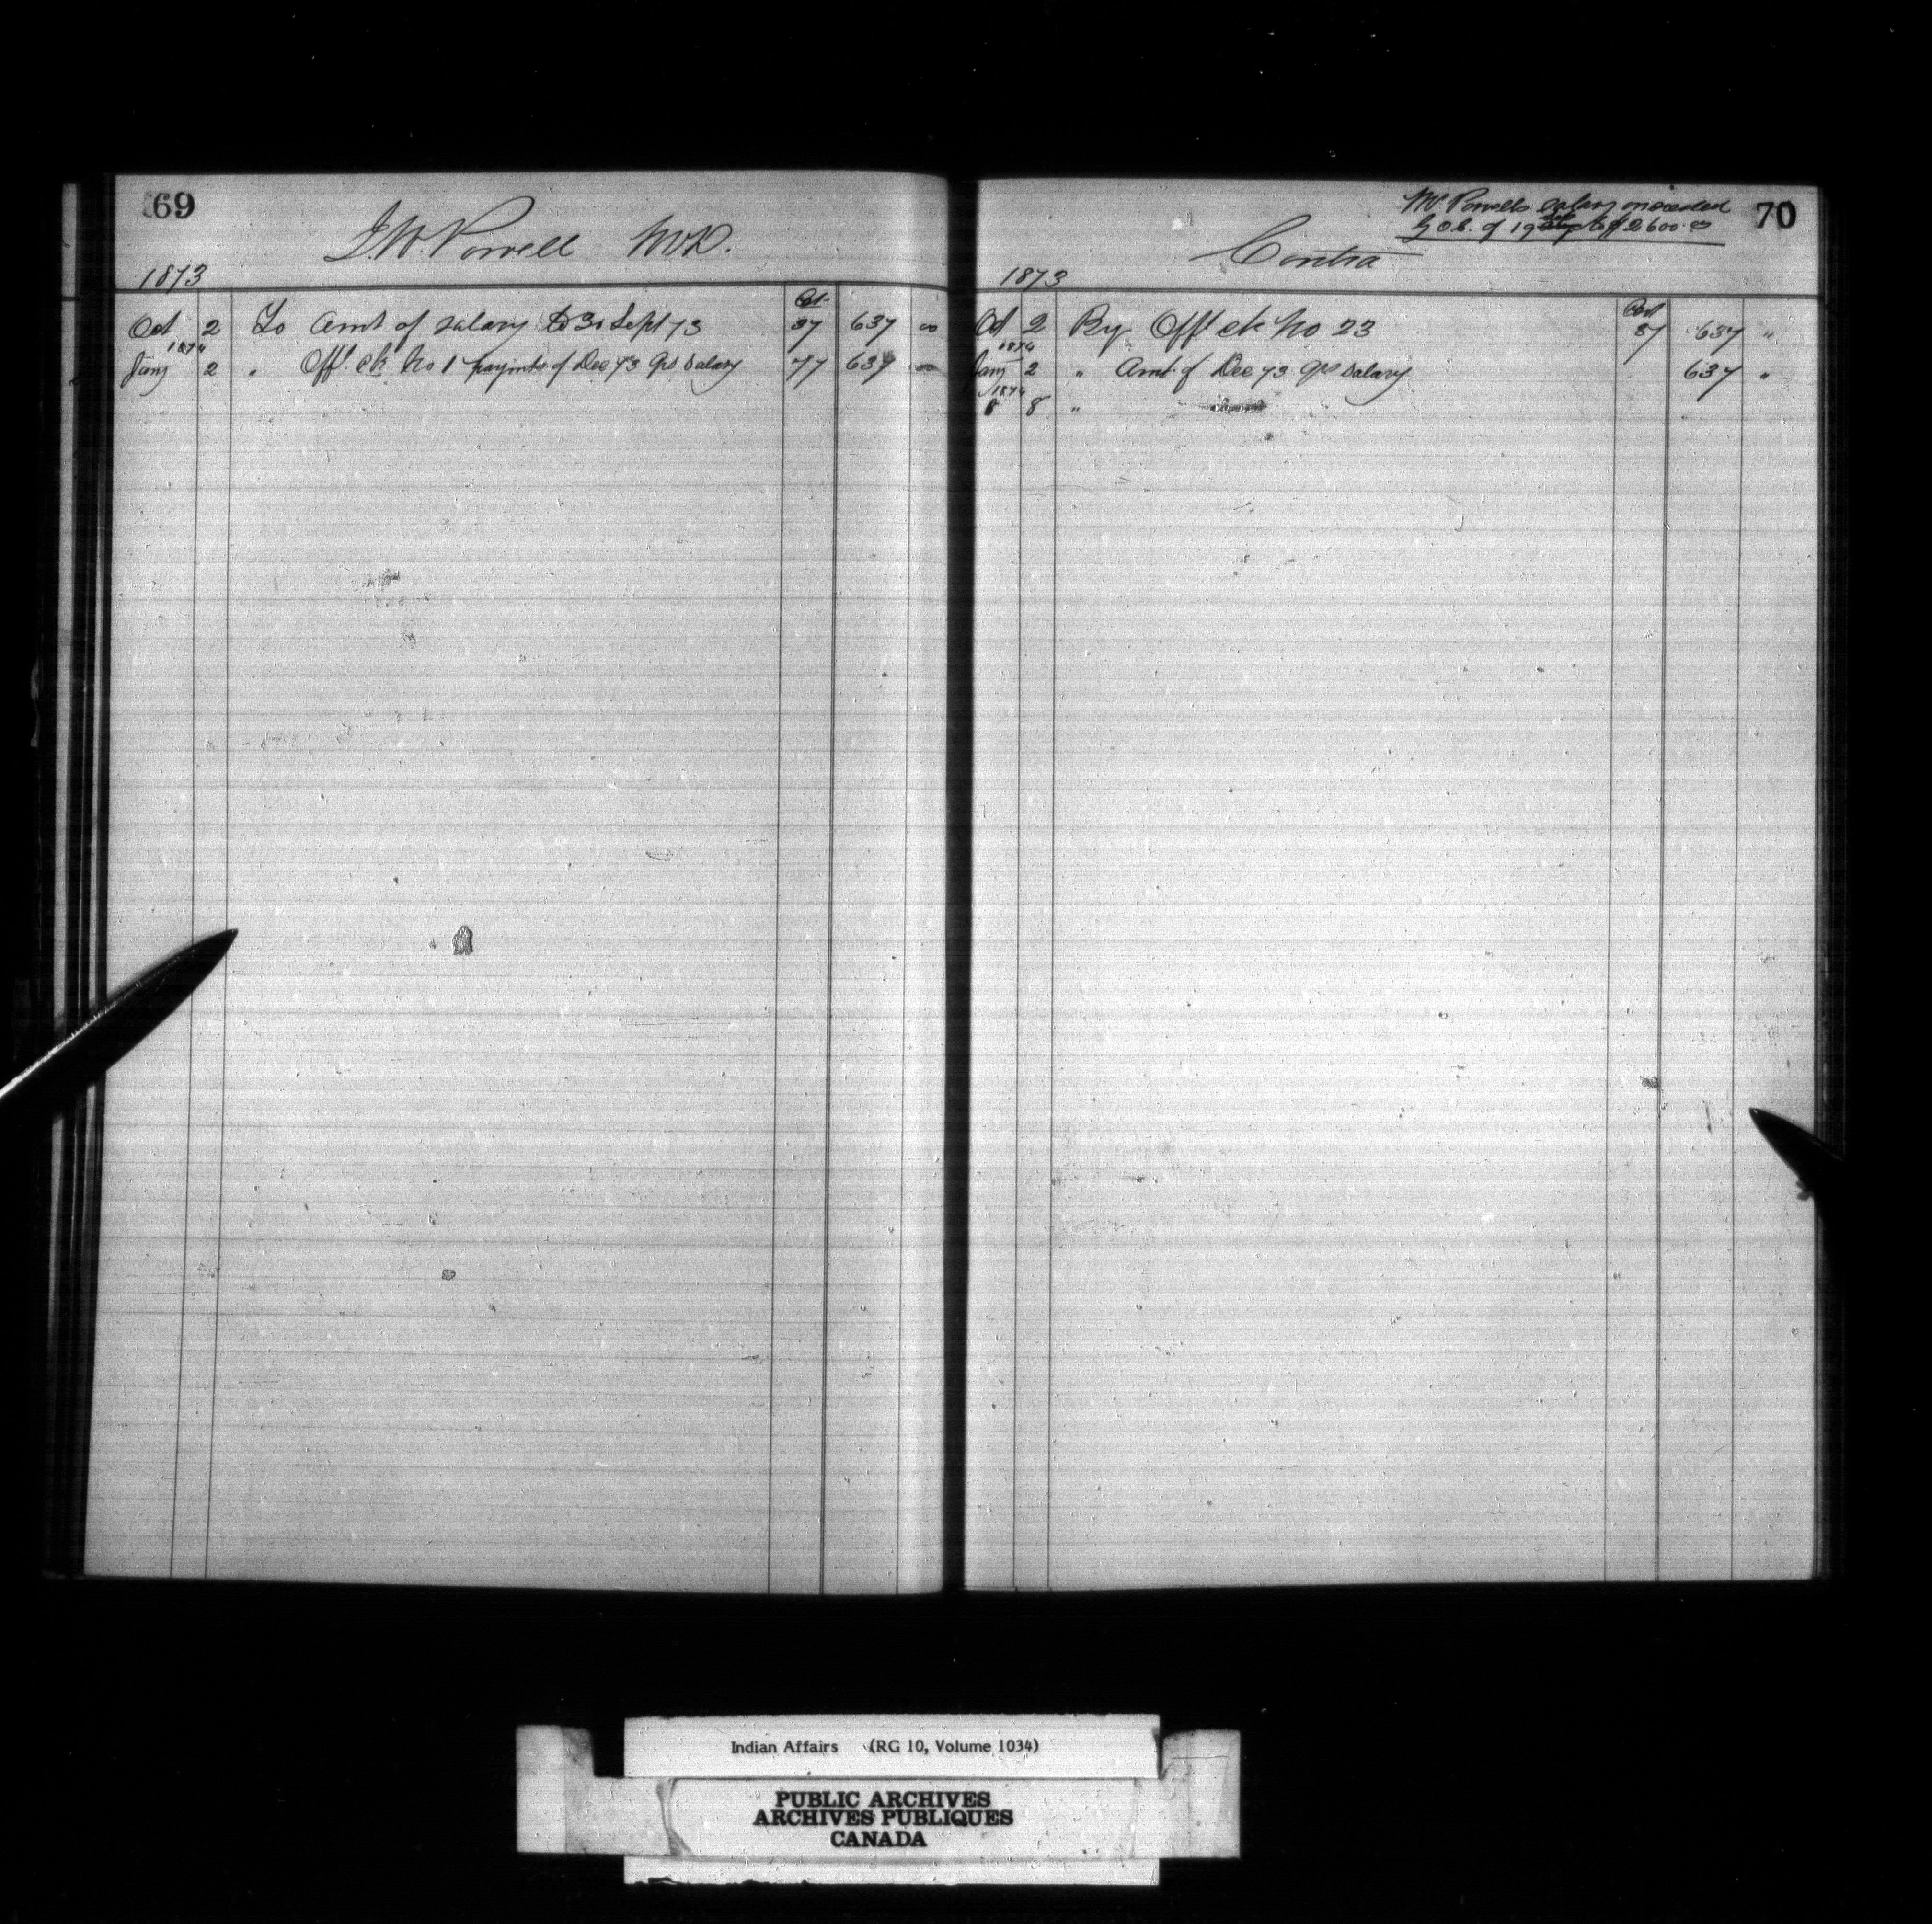 69
I. W. Powell M.D.
1873
Cst.
Oct 2 To Amt of salary to 30 Sept 73 37 637 00
1874
Jany 2 " Off. ck No 1 paymt of Dec 73 Qrs Salary 77 637 00
70
Mr Powells salary increased
G O C. of 19 to $2600.00
Contra
1873
Cst
Oct 2 By Off ck No 23 37 637 "
1874
Jany 2 " Amt of Dec 73 Qrs Salary 637 "
1874
8 "
Indian Affairs (RG 10, Volume 1034)
PUBLIC ARCHIVES
ARCHIVES PUBLIQUES
CANADA